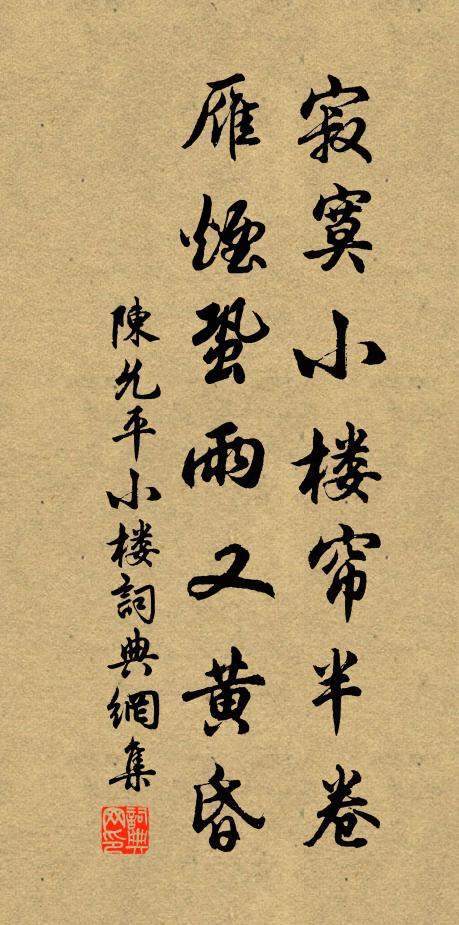 寂寞小楼帘半卷
雁煙蛩雨又黄昏
陳允平小楼詞典網集
詞典网印